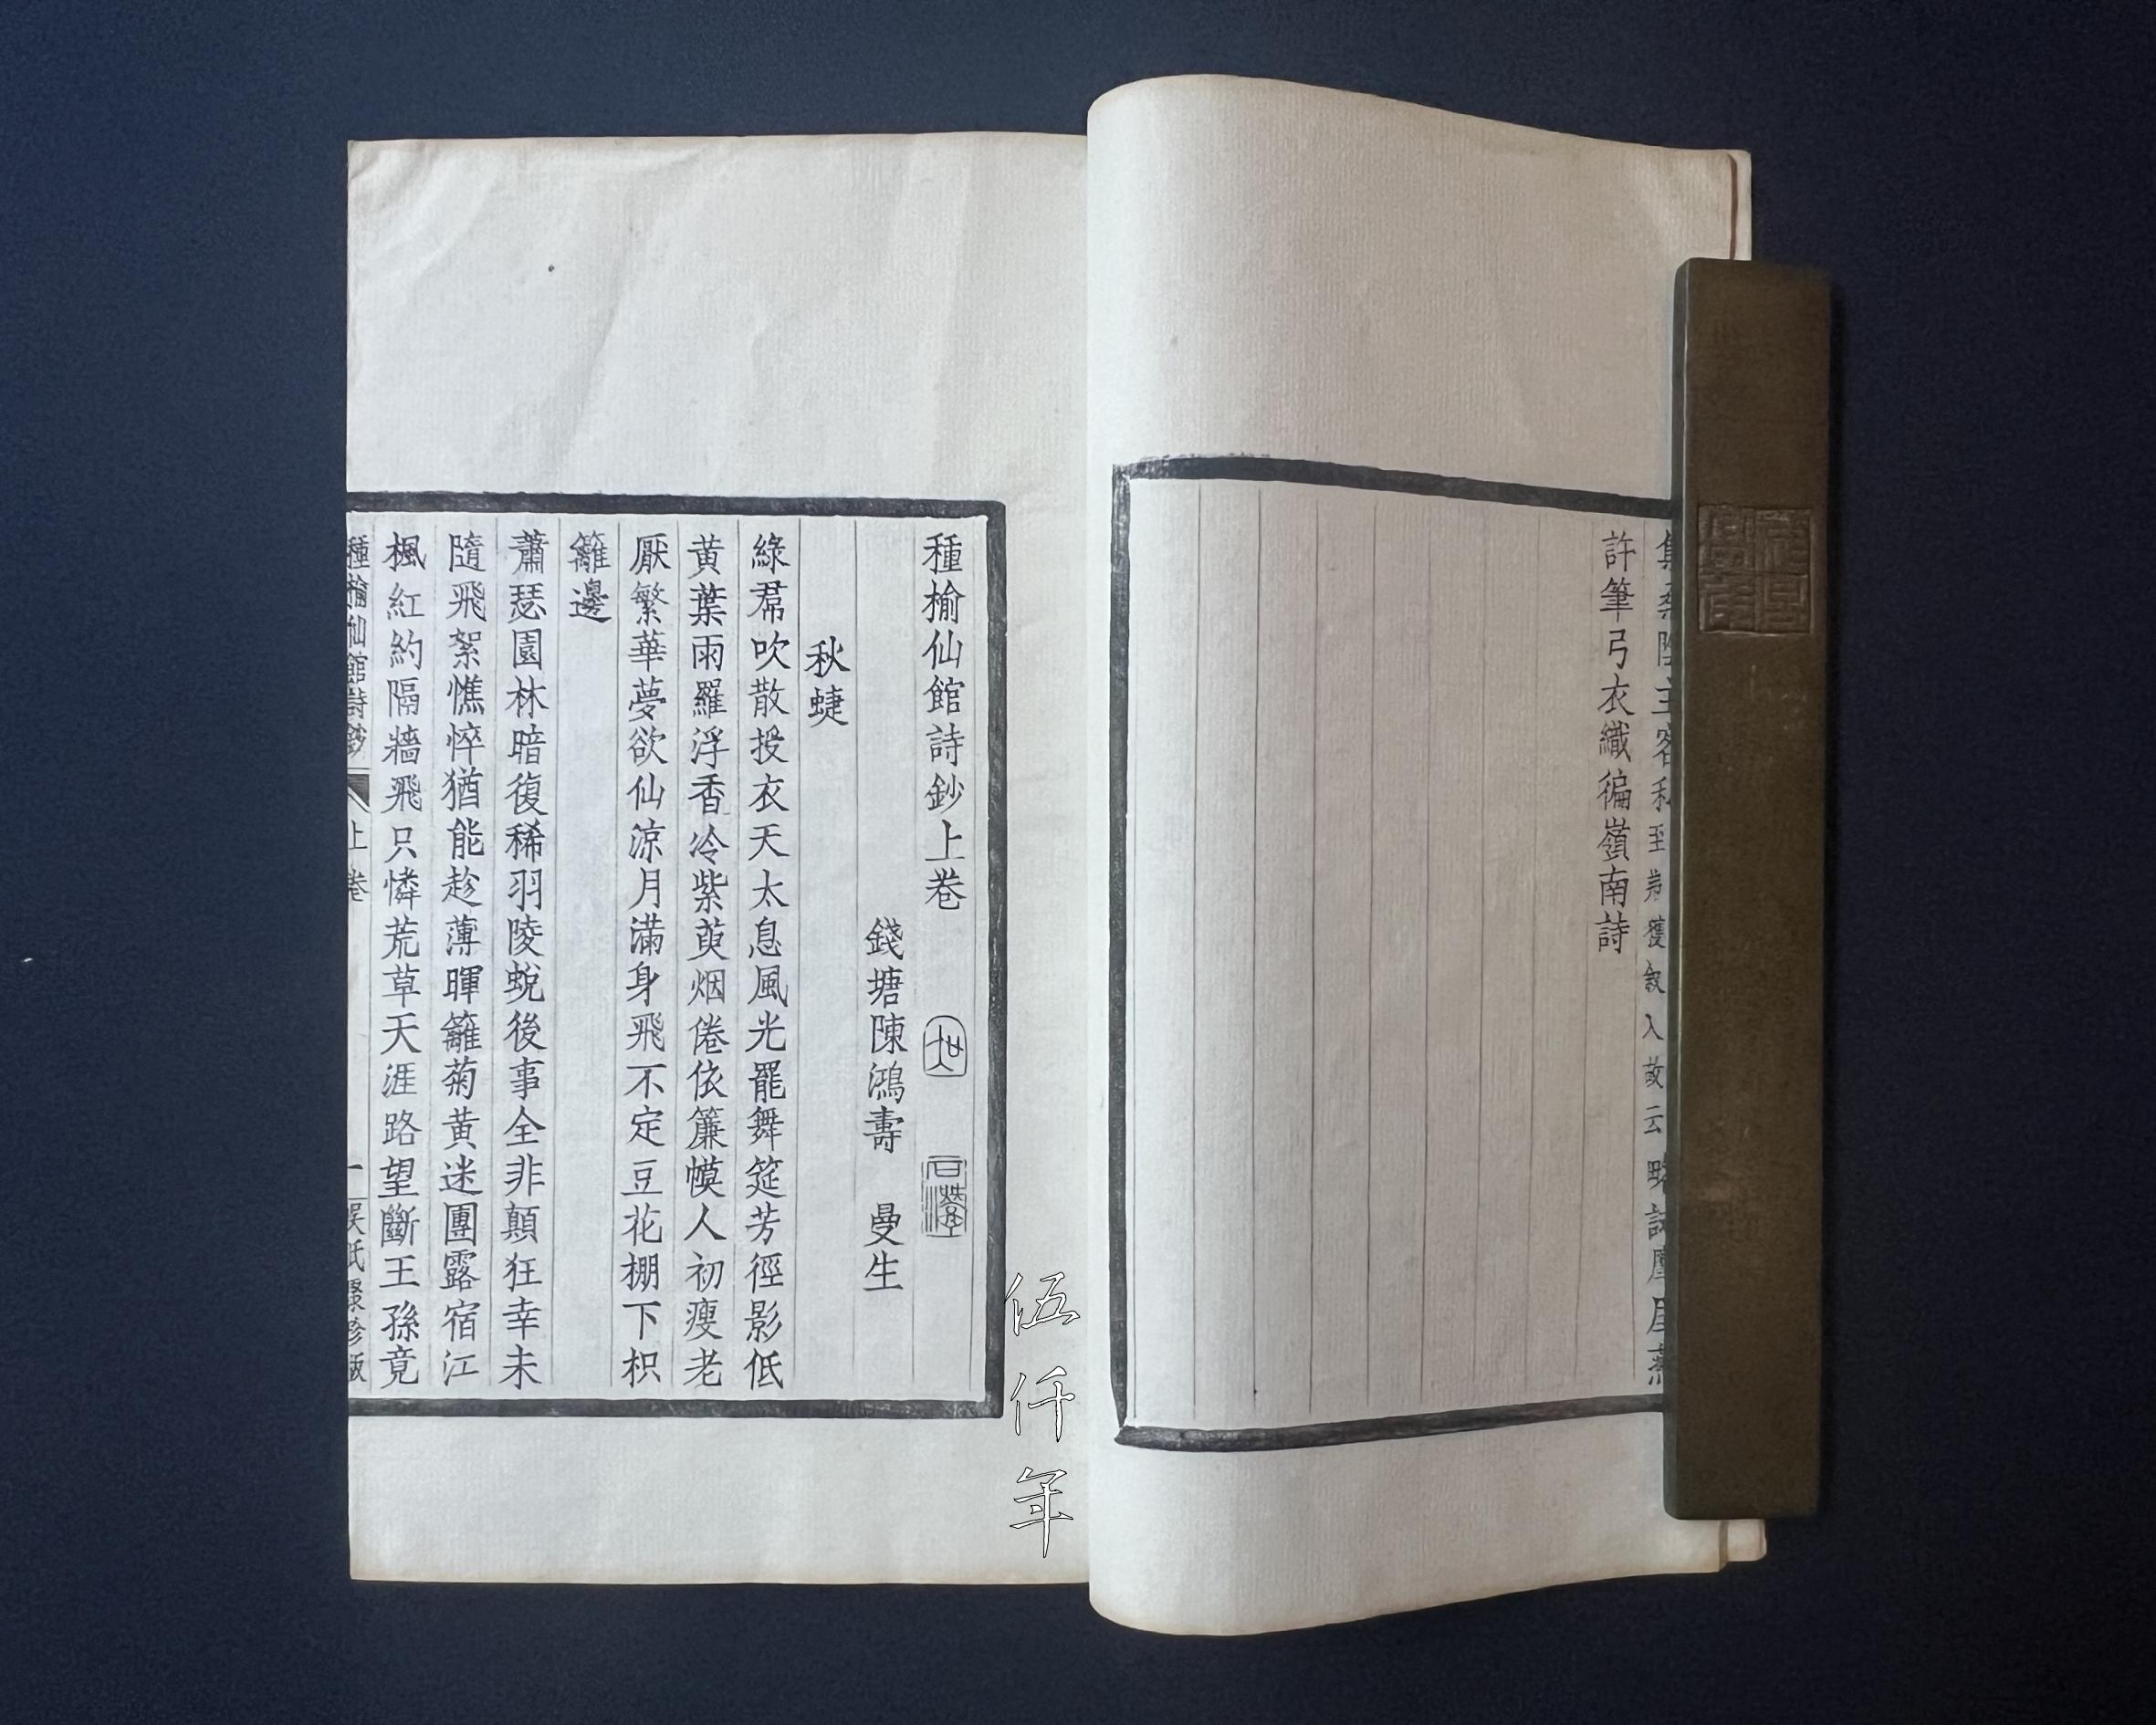 許筆弓衣織徧嶺南詩
種榆仙館詩鈔上巻
錢塘陳鴻壽 曼生
秋蜨
綠帬吹散授衣天太息風光罷舞筵芳徑影低
黃葉雨羅浮香冷紫萸烟倦依簾幙人初瘦老
厭繁華夢欲仙涼月滿身飛不定豆花棚下枳
籬邊
蕭瑟園林暗復稀羽陵蛻後事全非顛狂幸未
隨飛絮憔悴猶能趁薄暉籬菊黃迷團露宿江
楓紅約隔牆飛只憐荒草天涯路望斷王孫竟
種榆仙館詩鈔 上巻 一 吴氏聚珍版
伍仟年